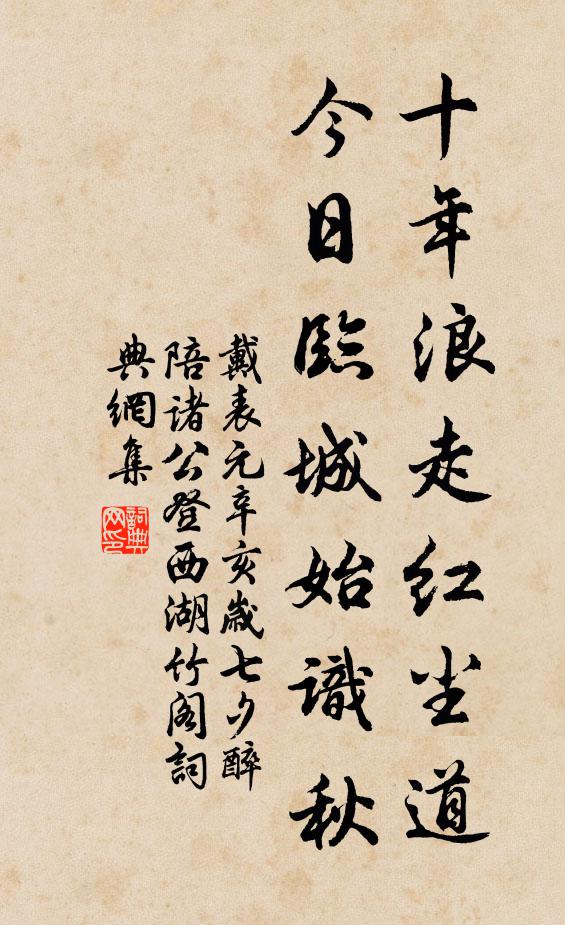 十年浪走红尘道
今日臨城始識秋
戴表元辛亥歲七夕醉
陪诸公登西湖竹阁詞
典網集
詞典
网印